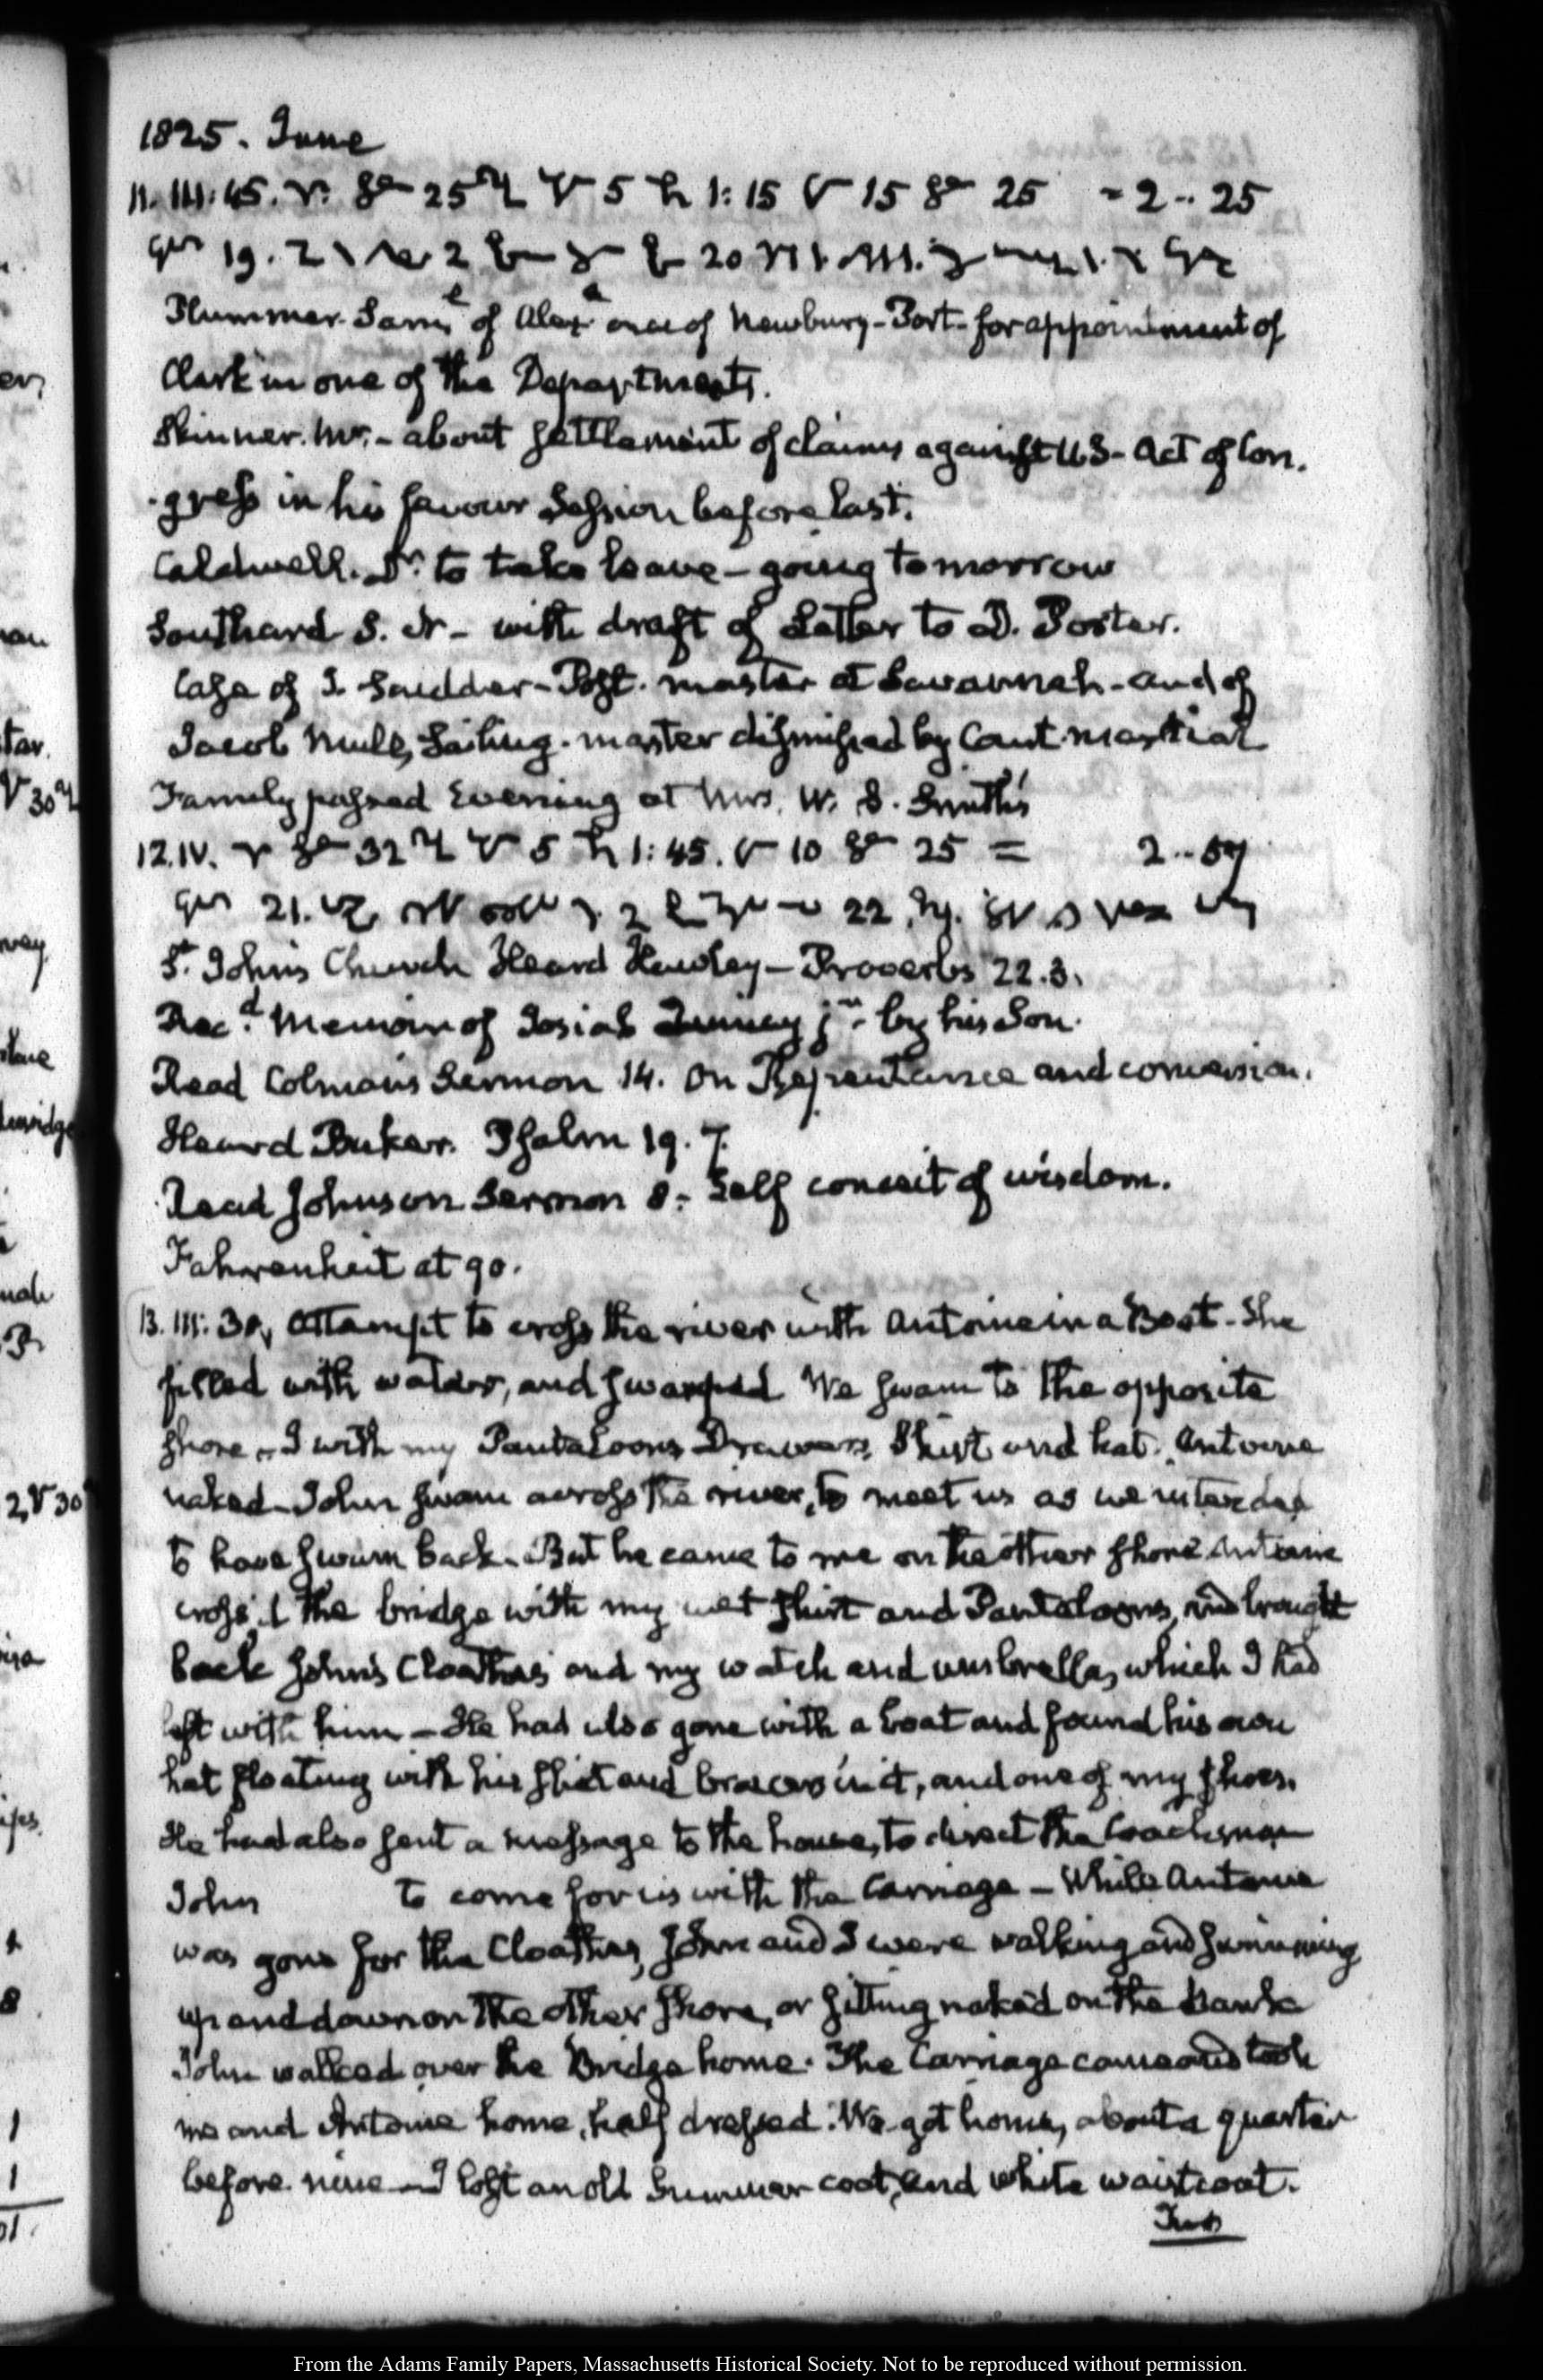 1825. June
11. III:45. 25 5 1:15 15 25 = 2.. 25
19. 2 20
Plummer. Sam.l of Alex.a once of Newbury-Port - for appointment of
Clerk in one of the Departments.
Skinner. Mr. - about settlement of claims against U S - Act of Con-
-gress in his favour Session before last.
Caldwell. Dr. to take leave - going tomorrow
Southard S. - with draft of Letter to D. Porter.
Case of I. Scudder - Post-master at Savannah - and of
Jacob Mull, Sailing-master dismissed by Court-martial
Family passed Evening at Mrs. W. S. Smith's
12. IV. 32 5 1:45. 10 25 = 2..57
21. 2 22
St. John's Church Heard Hawley - Proverbs 22.3.
Rec.d Memoir of Josiah Quincy jr. by his Son.
Read Colman's Sermon 14. On Repentance and conversion.
Heard Baker. Psalm 19. 7.
Read Johnson Sermon 8. Self conceit of wisdom.
Fahrenheit at 90.
13. III:30. Attempt to cross the river with Antoine in a Boat - She
filled with water, and swamped We swam to the opposite
shore - I with my Pantaloons Drawers, Shirt and hat. Antoine
naked - John swam across the river, to meet us as we intended
to have swum back. But he came to me on the other shore Antoine
cross'd the bridge with my wet shirt and Pantaloons, and brought
back John's Cloathes and my watch and umbrella, which I had
left with him - He had also gone with a boat and found his own
hat floating with his shirt and braces in it, and one of my shoes.
He had also sent a message to the house, to direct the Coachman
John to come for us with the Carriage - While Antoine
was gone for the Cloathes, John and I were walking and swimming
up and down on the other shore, or sitting naked on the bank
John walked over the Bridge home. The Carriage came and took
me and Antoine home, half dressed. We got home, about a quarter
before nine - I lost an old Summer coat, and white waistcoat.
Two
From the Adams Family Papers, Massachusetts Historical Society. Not to be reproduced without permission.